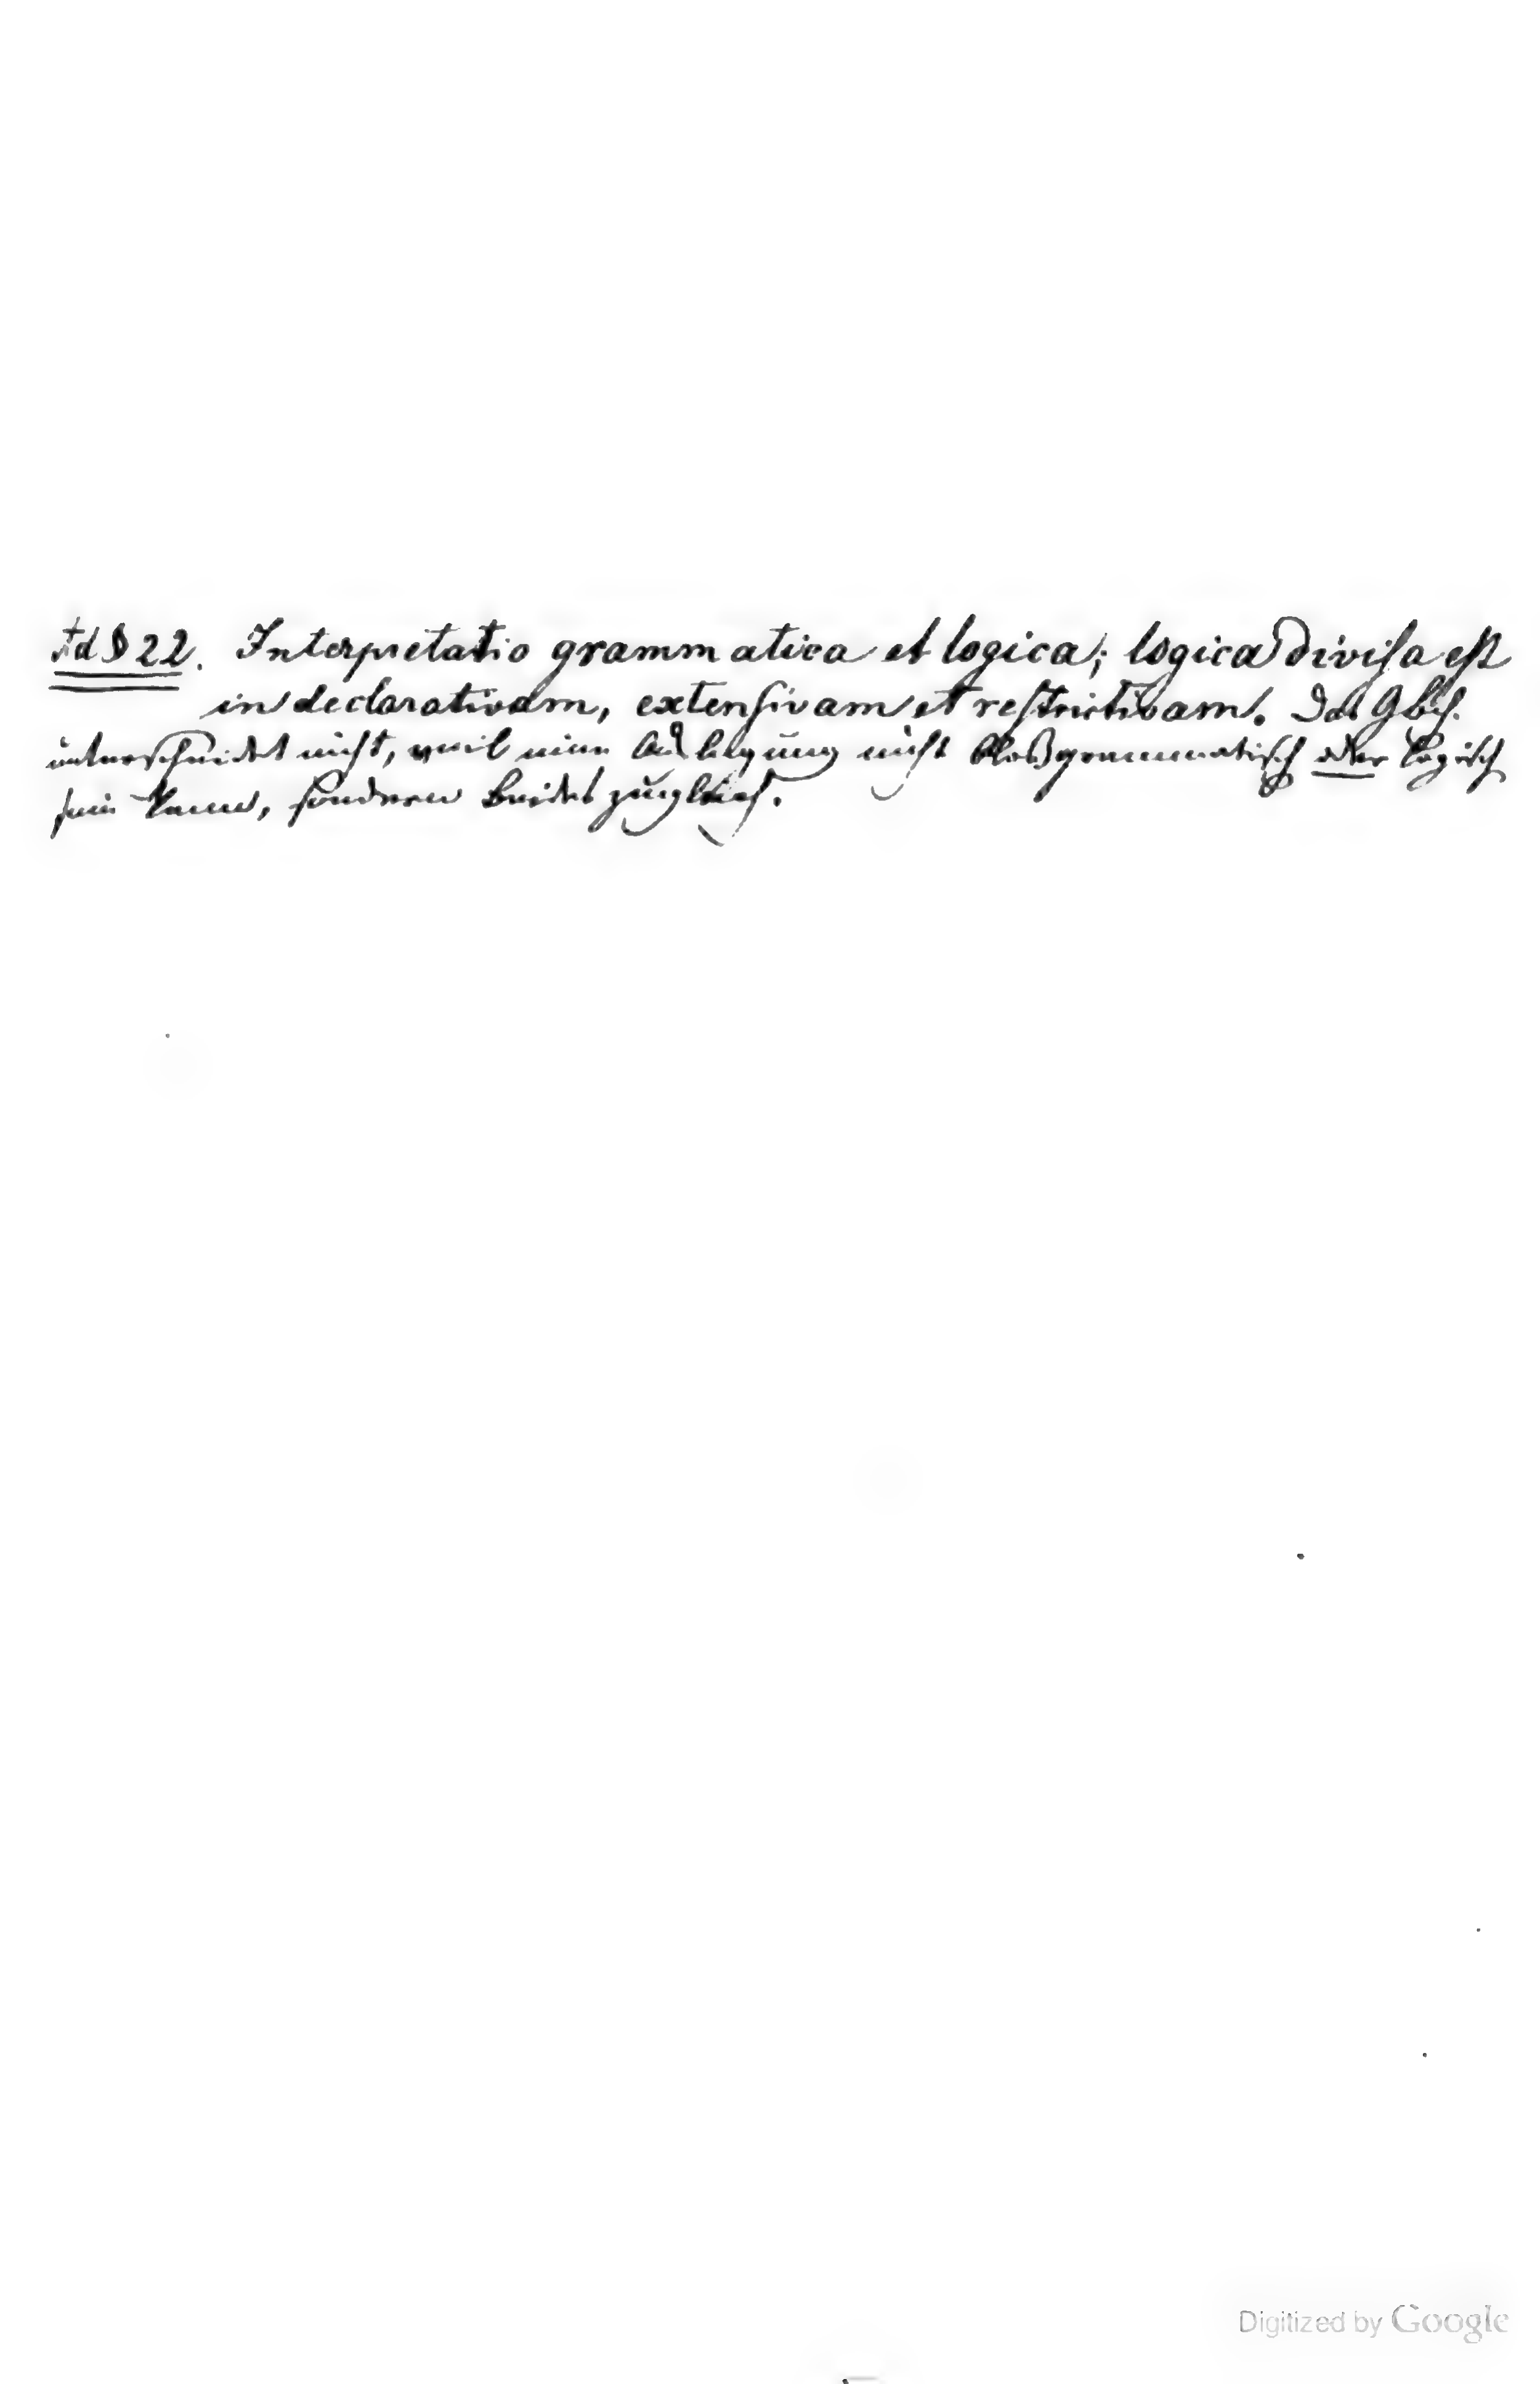 Ad § 22. Interpretatio grammatica et logica; logica divisa est
in declarativam, extensivam et restrictivam. Das Gbch.
unterscheidet nicht, weil eine Auslegung nicht bloß grammatisch oder logisch
sein kann, sondern beides zugleich.
Digitized by Google